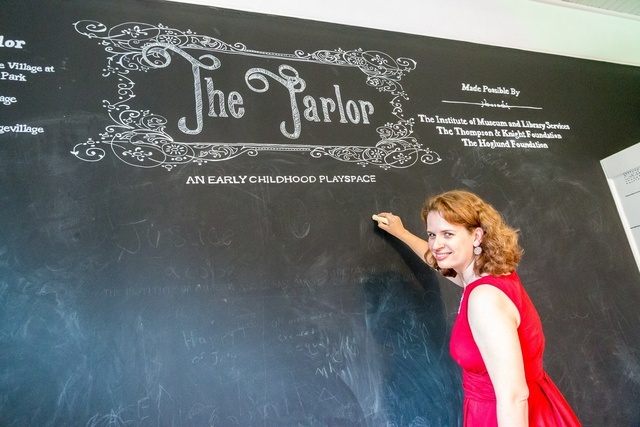 lor
e Village at
Park
age
gevillage
The Parlor
AN EARLY CHILDHOOD PLAYSPACE
Made Possible By
The Institute of Museum and Library Services
The Thompson & Knight Foundation
The Hoglund Foundation